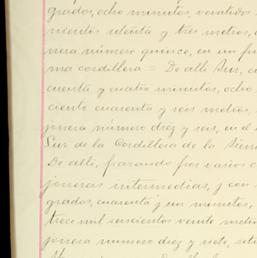 grados, ocho minutos, veintidos
nientos setenta y tres metros, a
jonera número quince, en un fu
ma cordillera = De alli Sur, cu
cuenta y cuatro minutos, ocho
ciento cuarenta y seis metros,
jonera número diez y seis, en el
Sur de la Cordillera de la Sierra
De alli, pasando por varios c
joneras intermedias, y con
grados, cuarenta y un minutos,
trece mil seiscientos veinte metro
jonera número diez y siete, situ